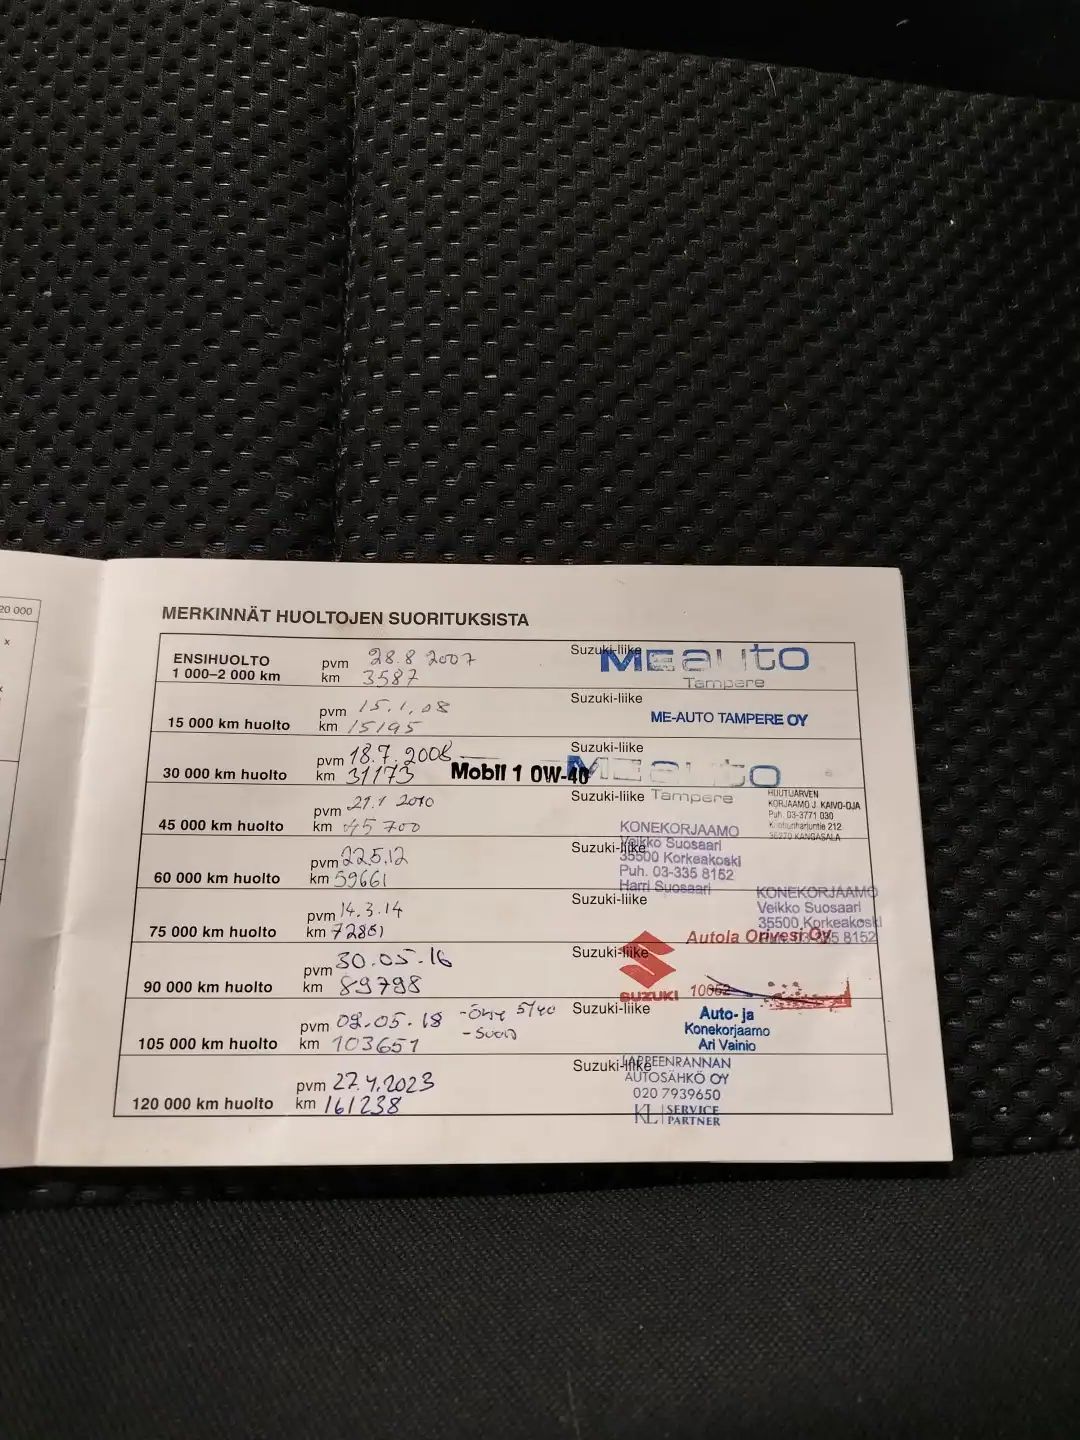 20 000
x
MERKINNÄT HUOLTOJEN SUORITUKSISTA
ENSIHUOLTO
1 000–2 000 km
pvm 28.8 2007
km 3587
Suzuki-liike
MEauto
Tampere
15 000 km huolto
pvm 15.1.08
km 15195
Suzuki-liike
ME-AUTO TAMPERE OY
30 000 km huolto
pvm 18.7.2008
km 31173
Mobil 1 0W-40
Suzuki-liike
MEauto
Tampere
45 000 km huolto
pvm 21.1 2010
km 45 700
Suzuki-liike
HUUTIJARVEN
KORJAAMO J. KAIVO-OJA
Puh. 03-3771 030
212
36270 KANGASALA
60 000 km huolto
pvm 22.5.12
km 59661
Suzuki-liike
KONEKORJAAMO
Veikko Suosaari
35500 Korkeakoski
Puh. 03-335 8152
Harri Suosaari
75 000 km huolto
pvm 14.3.14
km 72861
Suzuki-liike
KONEKORJAAMO
Veikko Suosaari
35500 Korkeakoski
Puh. 03-335 8152
90 000 km huolto
pvm 30.05.16
km 89798
Suzuki-liike
Autola Orivesi Oy
SUZUKI
10062
105 000 km huolto
pvm 02.05.18
km 103651
-Öljy 5/40
Suzuki-liike
Auto- ja
Konekorjaamo
Ari Vainio
120 000 km huolto
pvm 27.4.2023
km 161238
Suzuki-liike
LAPPEENRANNAN
AUTOSÄHKÖ OY
020 7939650
KL SERVICE
PARTNER